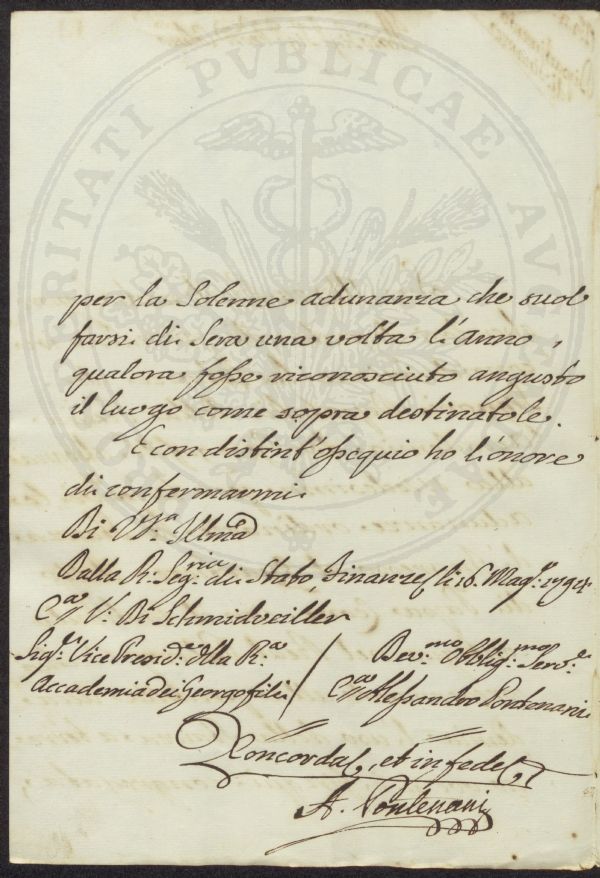 PROSPERITATI PVBLICAE AVGENDAE
per la Solenne adunanza che suol
farsi di Sera una volta l'anno,
qualora fosse riconosciuto angusto
il luogo come sopra destinatole.
E con distint'ossequio ho l'onore
di confermarmi.
Di V.ª Illmª
Dalla R: Seg:ria di Stato, Finanze li 16. Mag:º 1794
C:av V: Di Schmidveiller
Sig:e Vice Presid:e della R:ª
Accademia dei Georgofili
Dev:mo Obblig:mo Serv:e
C:av Alessandro Pontenani
Concorda, et in fede
A. Pontenani